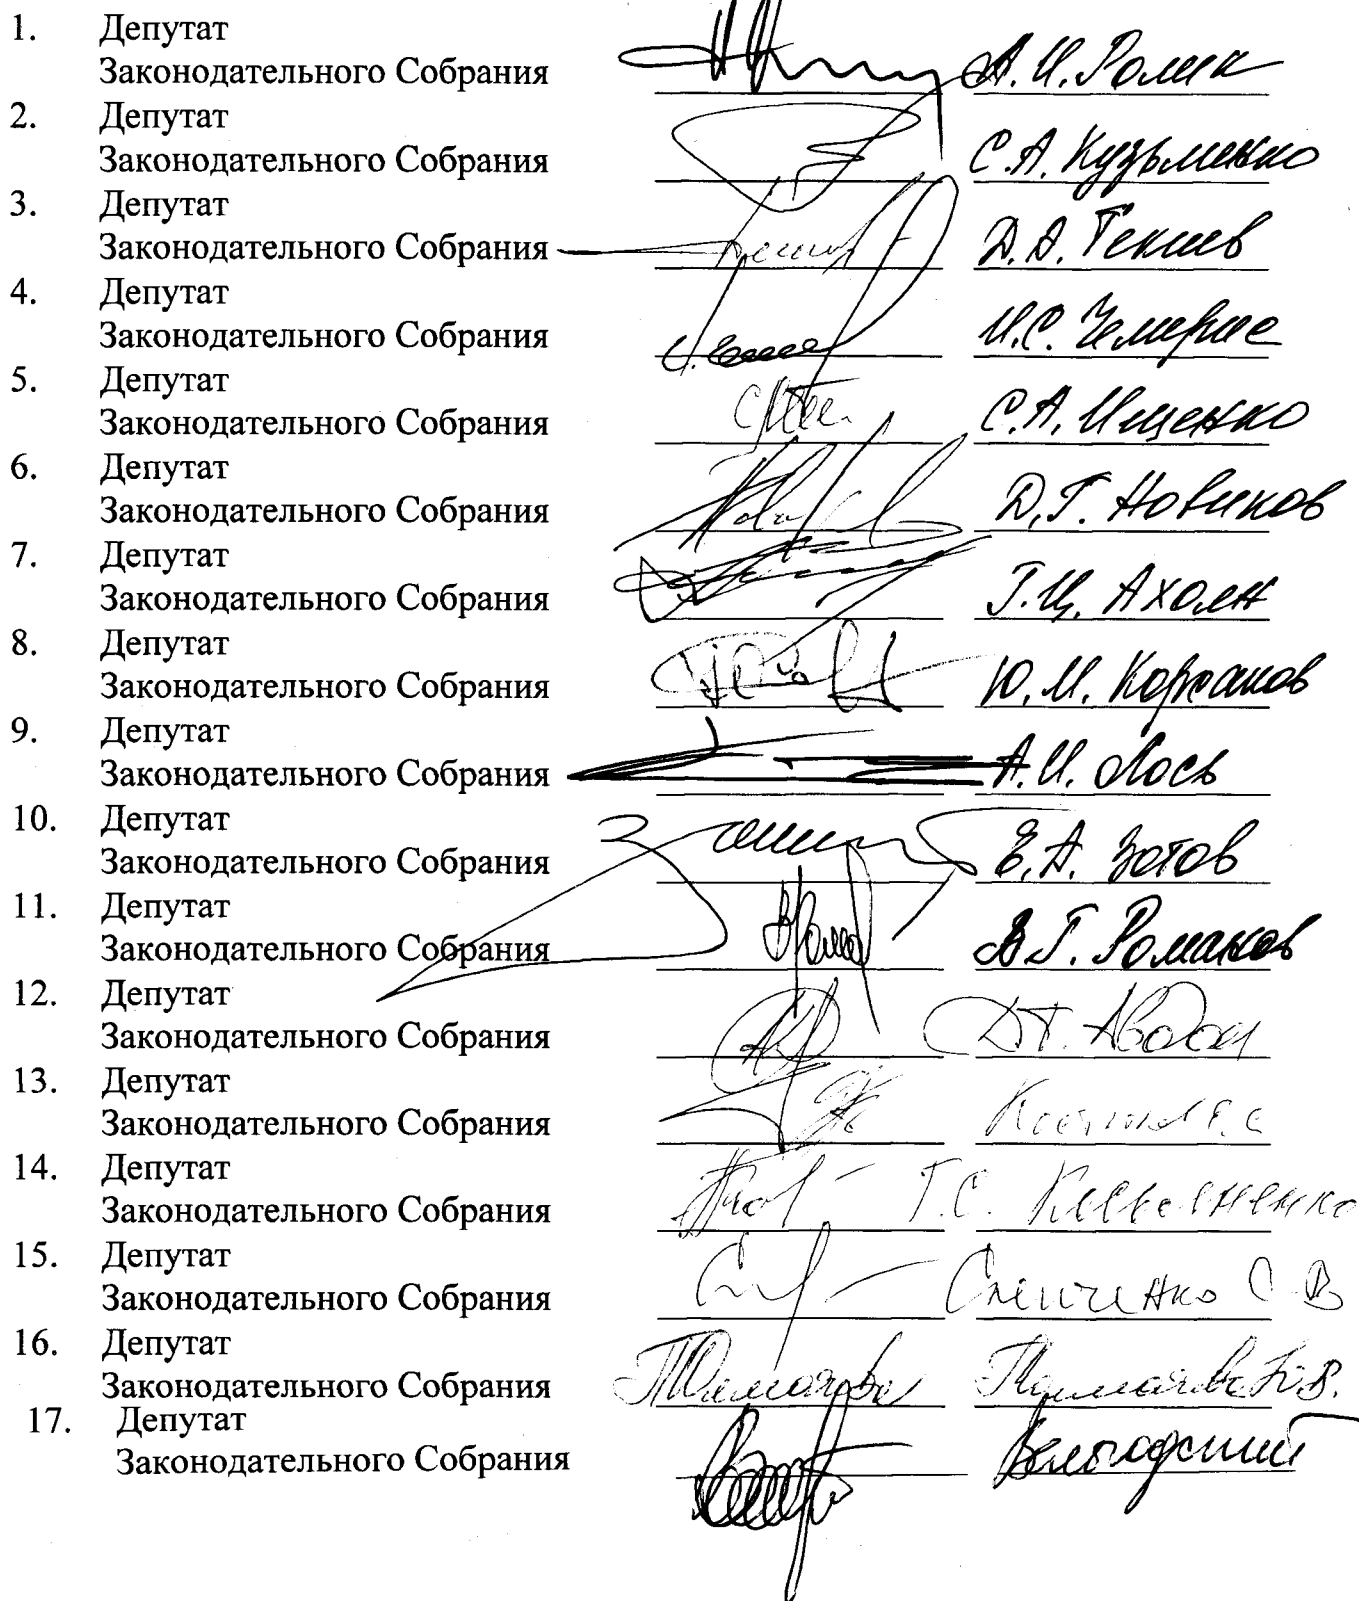 1. Депутат
Законодательного Собрания А.И. Ролик
2. Депутат
Законодательного Собрания С.А. Кузьменко
3. Депутат
Законодательного Собрания Д.А. Текиев
4. Депутат
Законодательного Собрания И.С. Чемерис
5. Депутат
Законодательного Собрания С.А. Ищенко
6. Депутат
Законодательного Собрания Д.Г. Новиков
7. Депутат
Законодательного Собрания Г.Ц. Ахоян
8. Депутат
Законодательного Собрания Ю.М. Корсаков
9. Депутат
Законодательного Собрания А.И. Лось
10. Депутат
Законодательного Собрания Е.А. Зотов
11. Депутат
Законодательного Собрания В.Г. Романов
12. Депутат
Законодательного Собрания
13. Депутат
Законодательного Собрания
14. Депутат
Законодательного Собрания Т.С.
15. Депутат
Законодательного Собрания Слепченко С В
16. Депутат
Законодательного Собрания Толмачева
17. Депутат
Законодательного Собрания Вельгодский